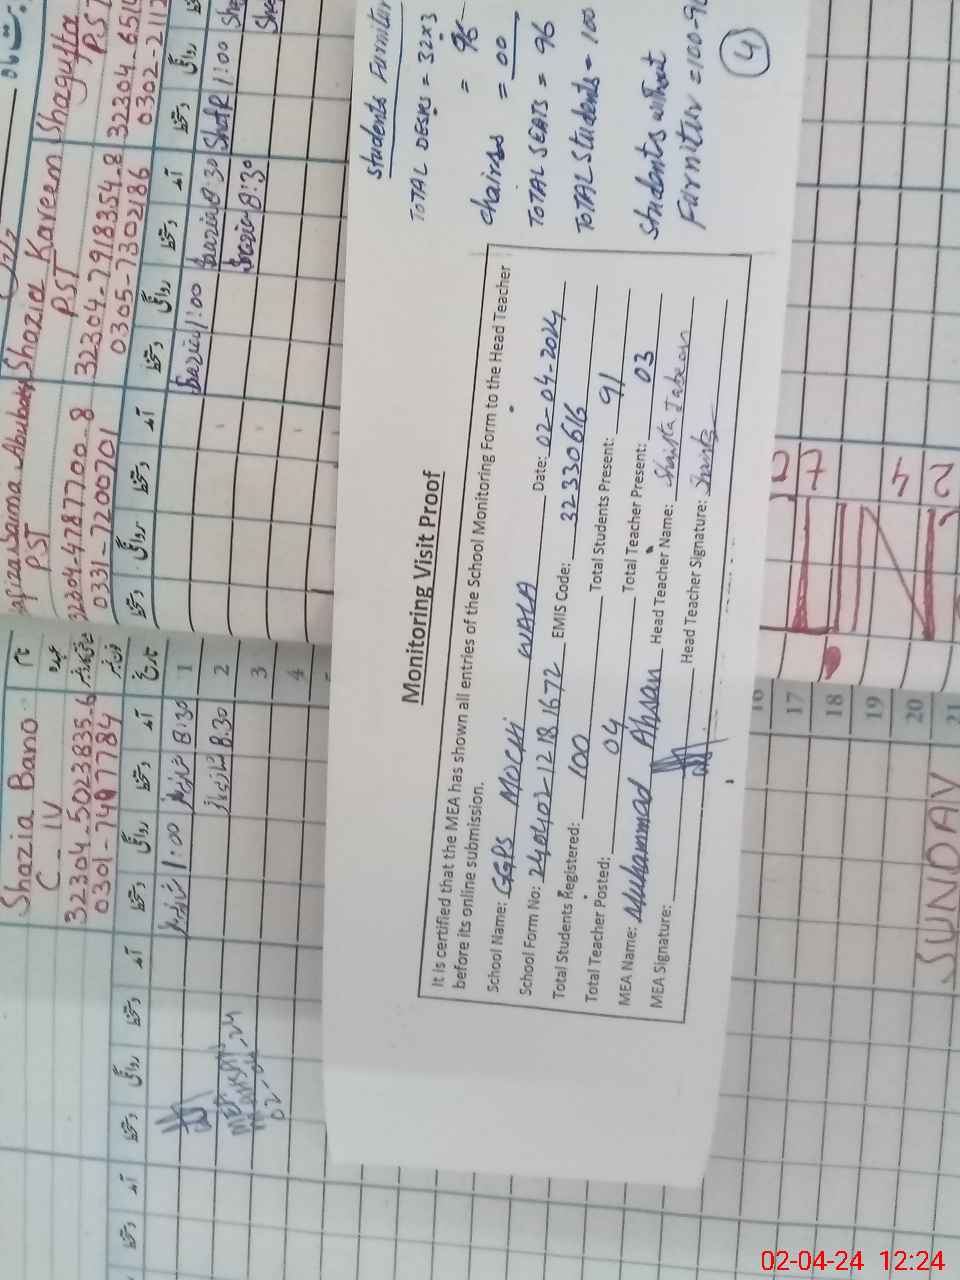 Shazia Bano
C IV
32304-5023835.6
0301-7407784
PST
32304-4787700-8
0331-7200701
Shazia Kareem
PST
32304-7918354-8
0305-7302186
Shagufta
PST
32304-6514
0302-2112
نام
عہدہ
تاریخ
آمد دستخط روانگی دستخط آمد دستخط روانگی دستخط آمد
دستخط روانگی دستخط آمد دستخط روانگی دستخط آمد دستخط روانگی
1 8:30 شازیہ 1:00 شازیہ
Shazia 1:00 Shazia 8:30 1:00
2 8:30 شازیہ
Shazia 8:30
3
4
02-04-24
Students Furniture
TOTAL DESKS = 32×3
= 96
Chairs = 00
TOTAL SEATS = 96
TOTAL Students = 100
Students without
Furniture = 100-96
4
Monitoring Visit Proof
It is certified that the MEA has shown all entries of the School Monitoring Form to the Head Teacher
before its online submission.
School Name: GGPS MOCHI WALA Date: 02-04-2024
School Form No: 240402-1218 1672 EMIS Code: 32330616
Total Students Registered: 100 Total Students Present: 91
Total Teacher Posted: 04 Total Teacher Present: 03
MEA Name: Muhammad Ahsan Head Teacher Name: Shaista Jabeen
MEA Signature: Head Teacher Signature: Shaista
16
17
18
19
20
21
SUNDAY
02-04-24 12:24